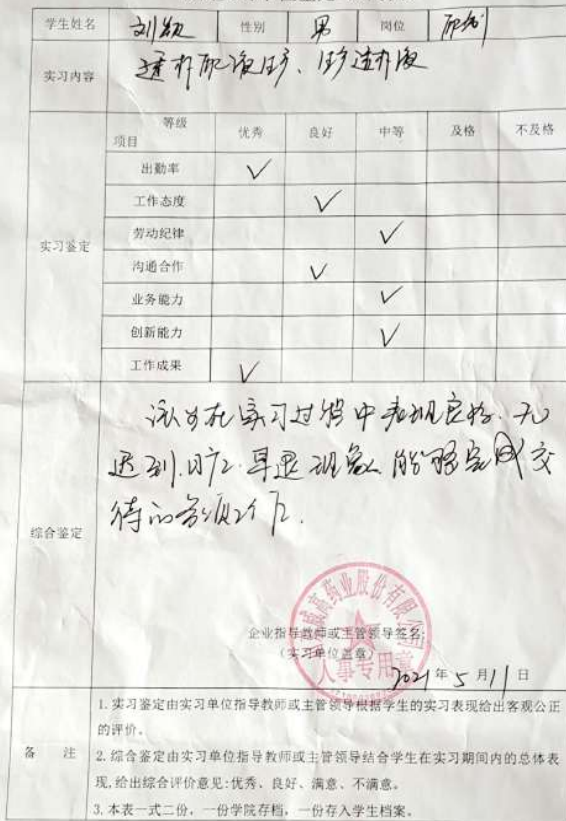 学生姓名 刘 性别 男 岗位 配剂
实习内容
等级
项目 优秀 良好 中等 及格 不及格
出勤率 ✓
工作态度 ✓
劳动纪律 ✓
实习鉴定
沟通合作 ✓
业务能力 ✓
创新能力 ✓
工作成果 ✓
该生在实习过程中表现良好.无
迟到.旷工.早退现象.能够完成交
待的各项工作.
综合鉴定
威高药业股份有限公司
企业指导教师或主管领导签名:
(实习单位盖章)
人事专用章
2021年5月11日
1.实习鉴定由实习单位指导教师或主管领导根据学生的实习表现给出客观公正
的评价。
备 注
2.综合鉴定由实习单位指导教师或主管领导结合学生在实习期间内的总体表
现,给出综合评价意见:优秀、良好、满意、不满意。
3.本表一式二份,一份学院存档,一份存入学生档案。